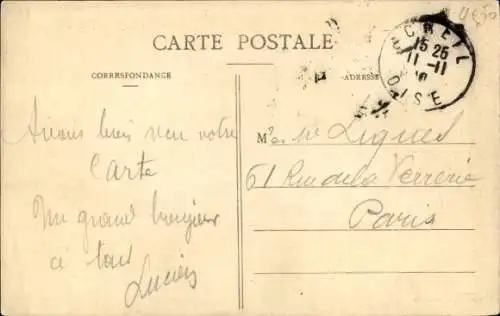 CARTE POSTALE
CORRESPONDANCE
ADRESSE
CREIL
15 25
11-11
10
OISE
Avons bien reçu votre
Carte
Un grand bonjour
à tous
Lucien
61 Rue de la Verrerie
Paris